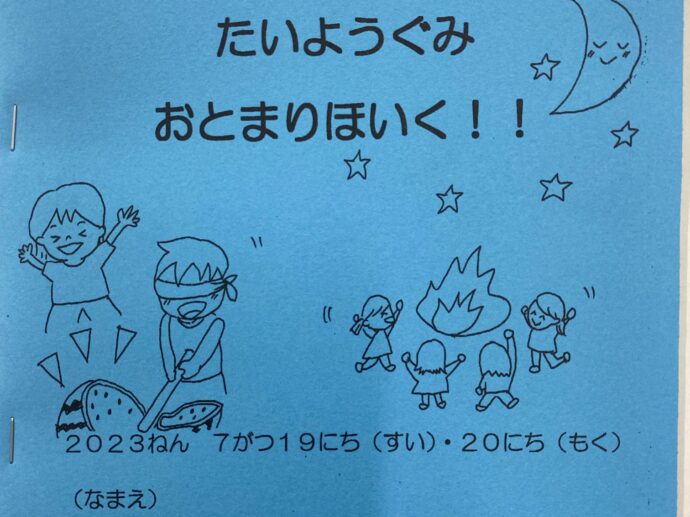 たいようぐみ
おとまりほいく！！
２０２３ねん　７がつ１９にち（すい）・２０にち（もく）
（なまえ）